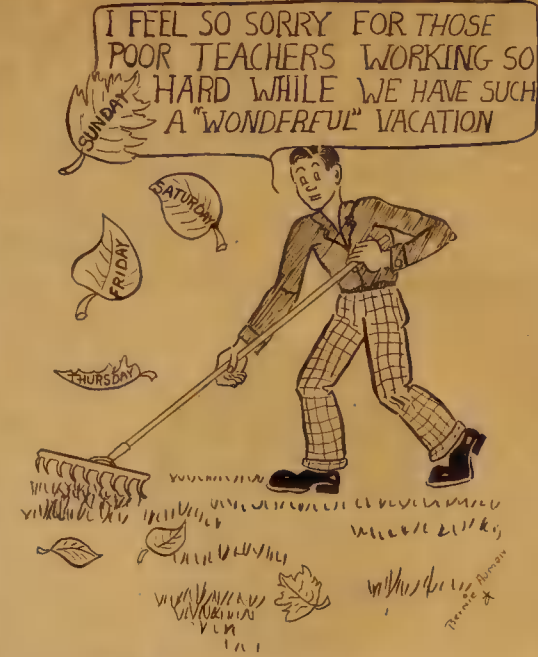 I FEEL SO SORRY FOR THOSE
POOR TEACHERS WORKING SO
HARD WHILE WE HAVE SUCH
A "WONDERFUL" VACATION
SUNDAY
SATURDAY
FRIDAY
THURSDAY
Bernie